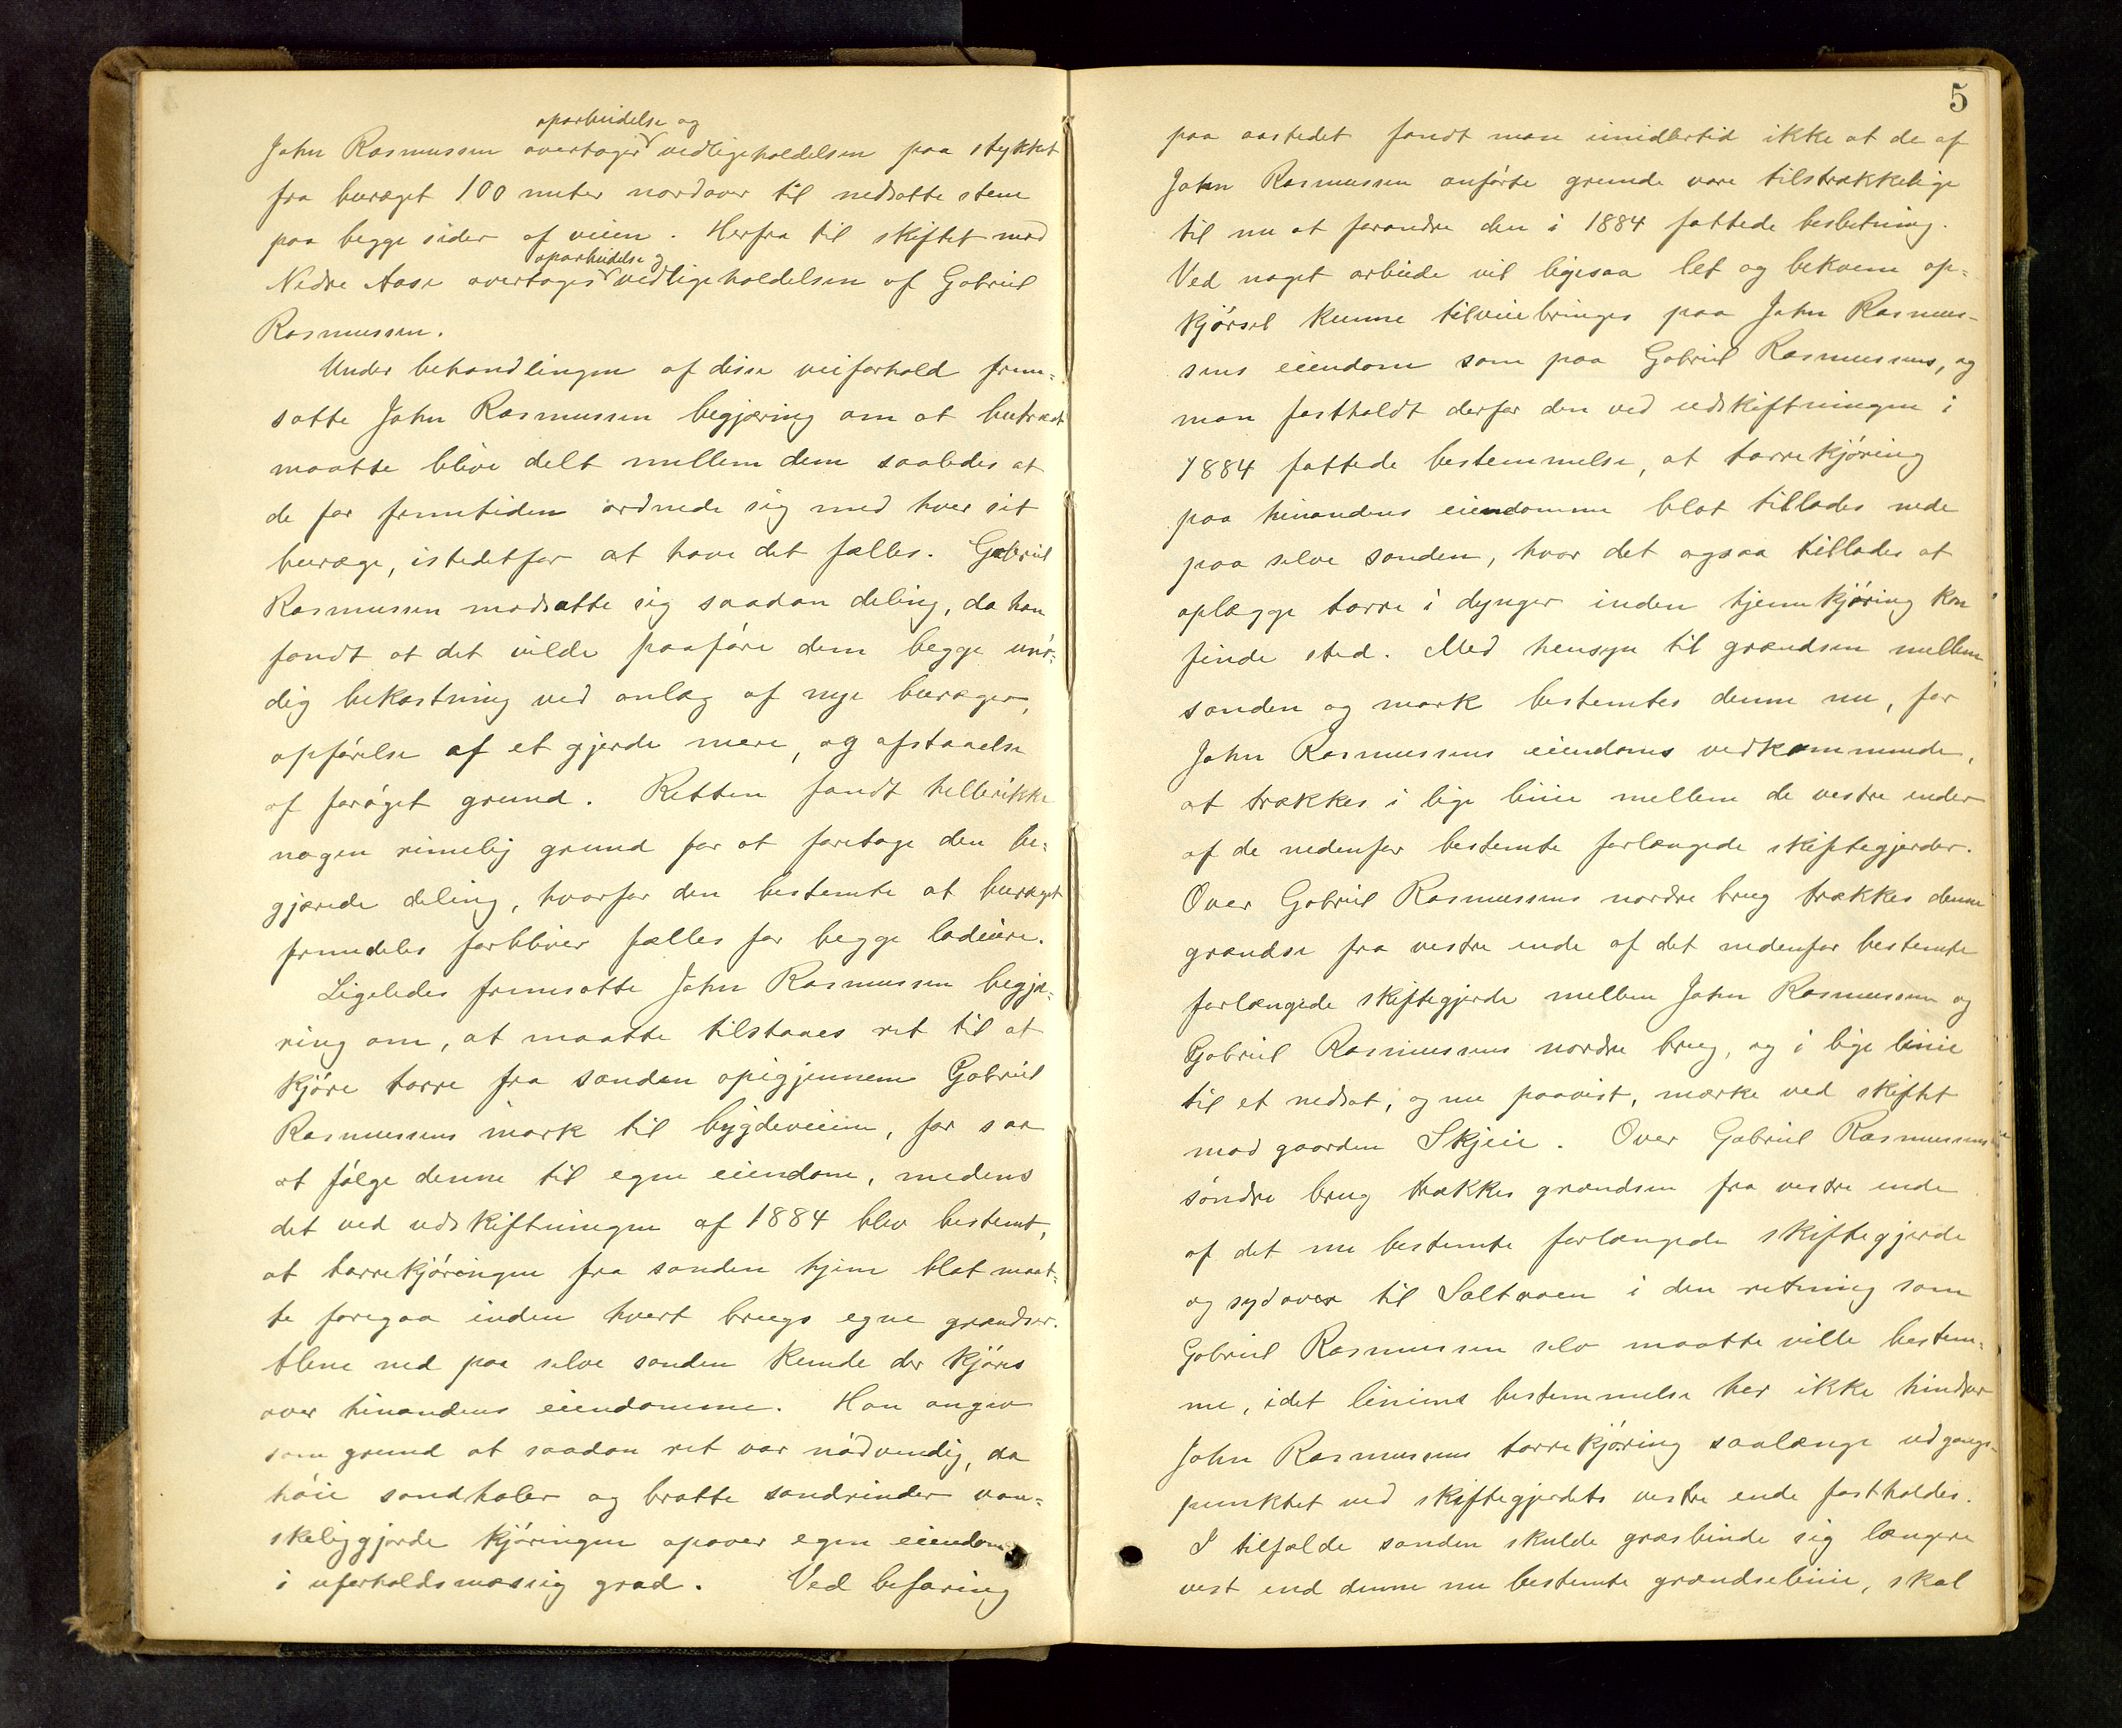 oparbeidelse og
John Rasmussen overtager vedligeholdelsen paa stykket
fra buræget 100 meter nordover til nedsatte stene
paa begge sider af veien. Herfra til skiftet mod
oparbeidelse og
Nedre Aase overtages vedligeholdelsen af Gabriel
Rasmussen.
Under behandlingen af disse veiforhold frem-
satte John Rasmussen begjæring om at
maatte blive delt mellem dem saaledes at
de for fremtiden ordnede sig med hver sit
buræge, istedetfor at have det fælles. Gabriel
Rasmussen modsatte sig saadan deling, da han
fandt at det vilde paaføre dem begge unø-
dig bekostning ved anlæg af nye buræger,
opførelse af et gjerde mere, og afstaaelse
af forøget grund. Retten fandt heller ikke
nogen rimelig grund for at foretage den be-
gjærede deling, hvorfor den bestemte at buræget
fremdeles forbliver fælles for begge lodeiere.
Ligeledes fremsatte John Rasmussen begjæ-
ring om, at maatte tilstaaes ret til at
kjøre tarre fra sanden opigjennem Gabriel
Rasmussens mark til bygdeveien, for saa
at følge denne til egen eiendom, medens
det ved udskiftningen af 1884 blev bestemt,
at tarrekjøringen fra sanden hjem blot maat-
te foregaa inden hvert brugs egne grændser.
Alene ned paa selve sanden kunde der kjøres
over hinandens eiendomme. Han angav
som grund at saadan ret var nødvendig, da
høie sandhaler og bratte sandrinder van-
skeliggjorde kjøringen opover egen eiendom
i uforholdsmæssig grad. Ved befaring
5
paa aastedet fandt man imidlertid ikke at de af
John Rasmussen anførte grunde vare tilstrækkelige
til nu at forandre den i 1884 fattede beslutning.
Ved noget arbeide vil ligesaa let og bekvem op-
kjørsel kunne tilveiebringes paa John Rasmus-
sens eiendom som paa Gabriel Rasmussens, og
man fastholdt derfor den ved udskiftningen i
1884 fattede bestemmelse, at tarrekjøring
paa hinandens eiendomme blot tillades nede
paa selve sanden, hvor det ogsaa tillades at
oplægge tarre i dynger inden hjemkjøring kan
finde sted. Med hensyn til grændsen mellem
sanden og mark bestemtes denne nu, for
John Rasmussens eiendoms vedkommende,
at trækkes i lige linie mellem de vestre ender
af de nedenfor bestemte forlængede skiftegjerder.
Over Gabriel Rasmussens nordre brug trækkes denne
grændse fra vestre ende af det nedenfor bestemte
forlængede skiftegjerde mellem John Rasmussen og
Gabriel Rasmussens nordre brug, og i lige linie
til et nedsat, og nu paavist, mærke ved skiftet
mod gaarden Skjeie. Over Gabriel Rasmussens
søndre brug trækkes grændsen fra vestre ende
af det nu bestemte forlængede skiftegjerde
og sydover til Saltraen i den retning som
Gabriel Rasmussen selv maatte ville bestem-
me, idet liniens bestemmelse her ikke hindrer
John Rasmussens tarrekjøring saalænge udgangs-
punktet ved skiftegjerdets vestre ende fastholdes.
I tilfælde sanden skulde græsbinde sig længere
vest end denne nu bestemte grændselinie, skal